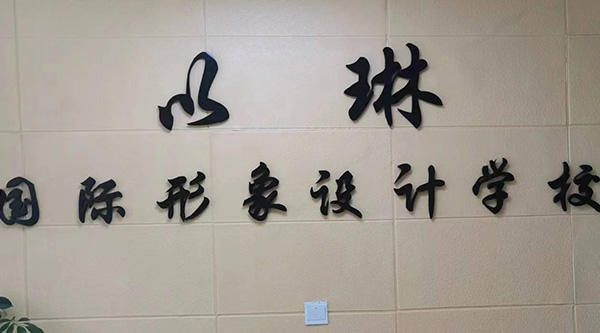 以琳
国际形象设计学校